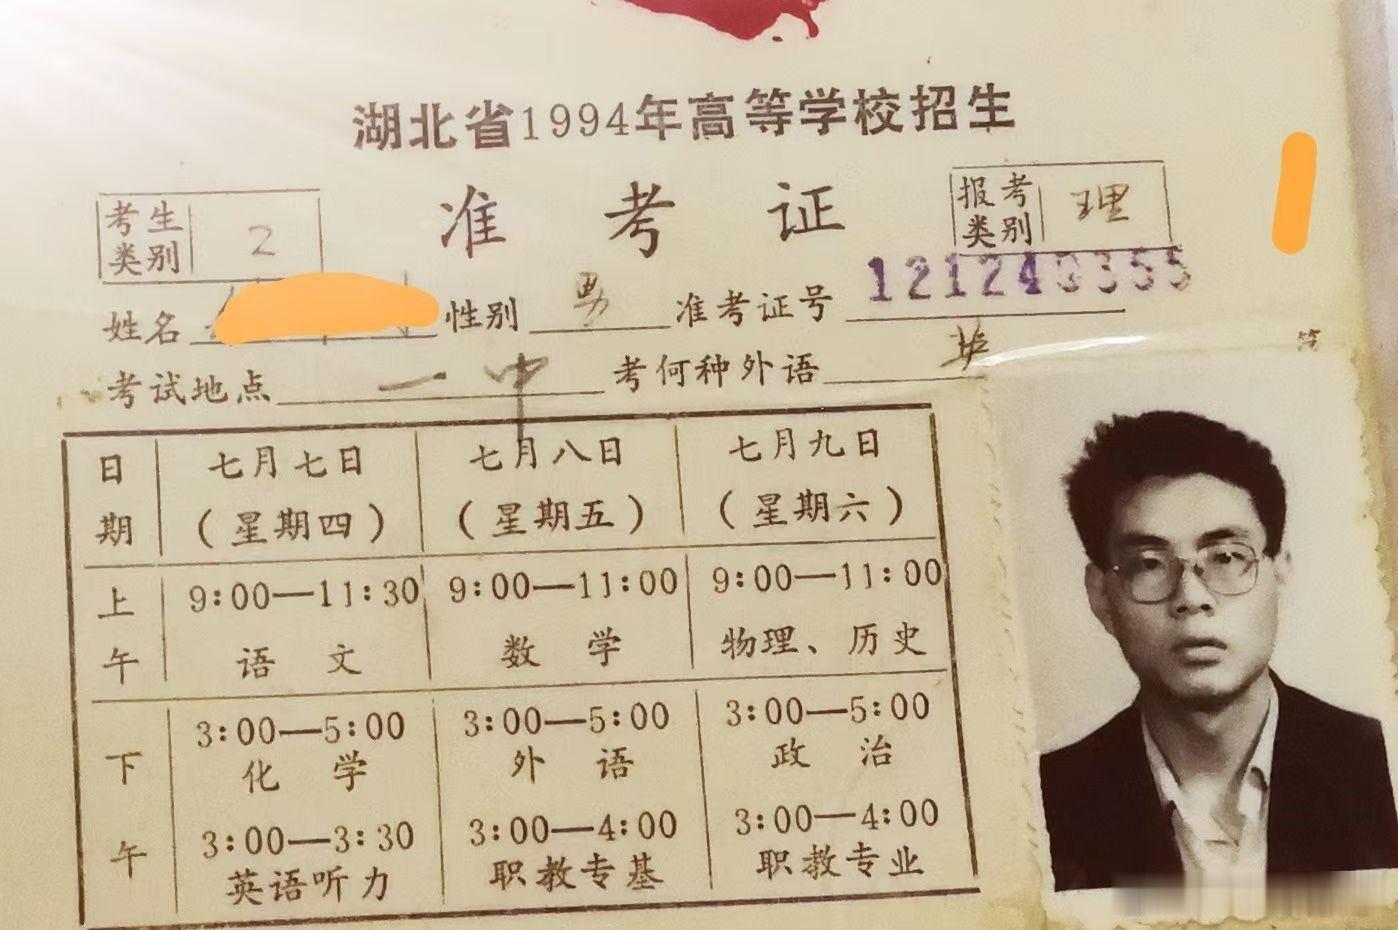 湖北省1994年高等学校招生
准考证
考生类别 2
报考类别 理
姓名 性别 男 准考证号 121240355
考试地点 一中 考何种外语 英
日期 七月七日(星期四) 七月八日(星期五) 七月九日(星期六)
上午 9:00—11:30 9:00—11:00 9:00—11:00
语文 数学 物理、历史
下午 3:00—5:00 3:00—5:00 3:00—5:00
化学 外语 政治
3:00—3:30 3:00—4:00 3:00—4:00
英语听力 职教专基 职教专业